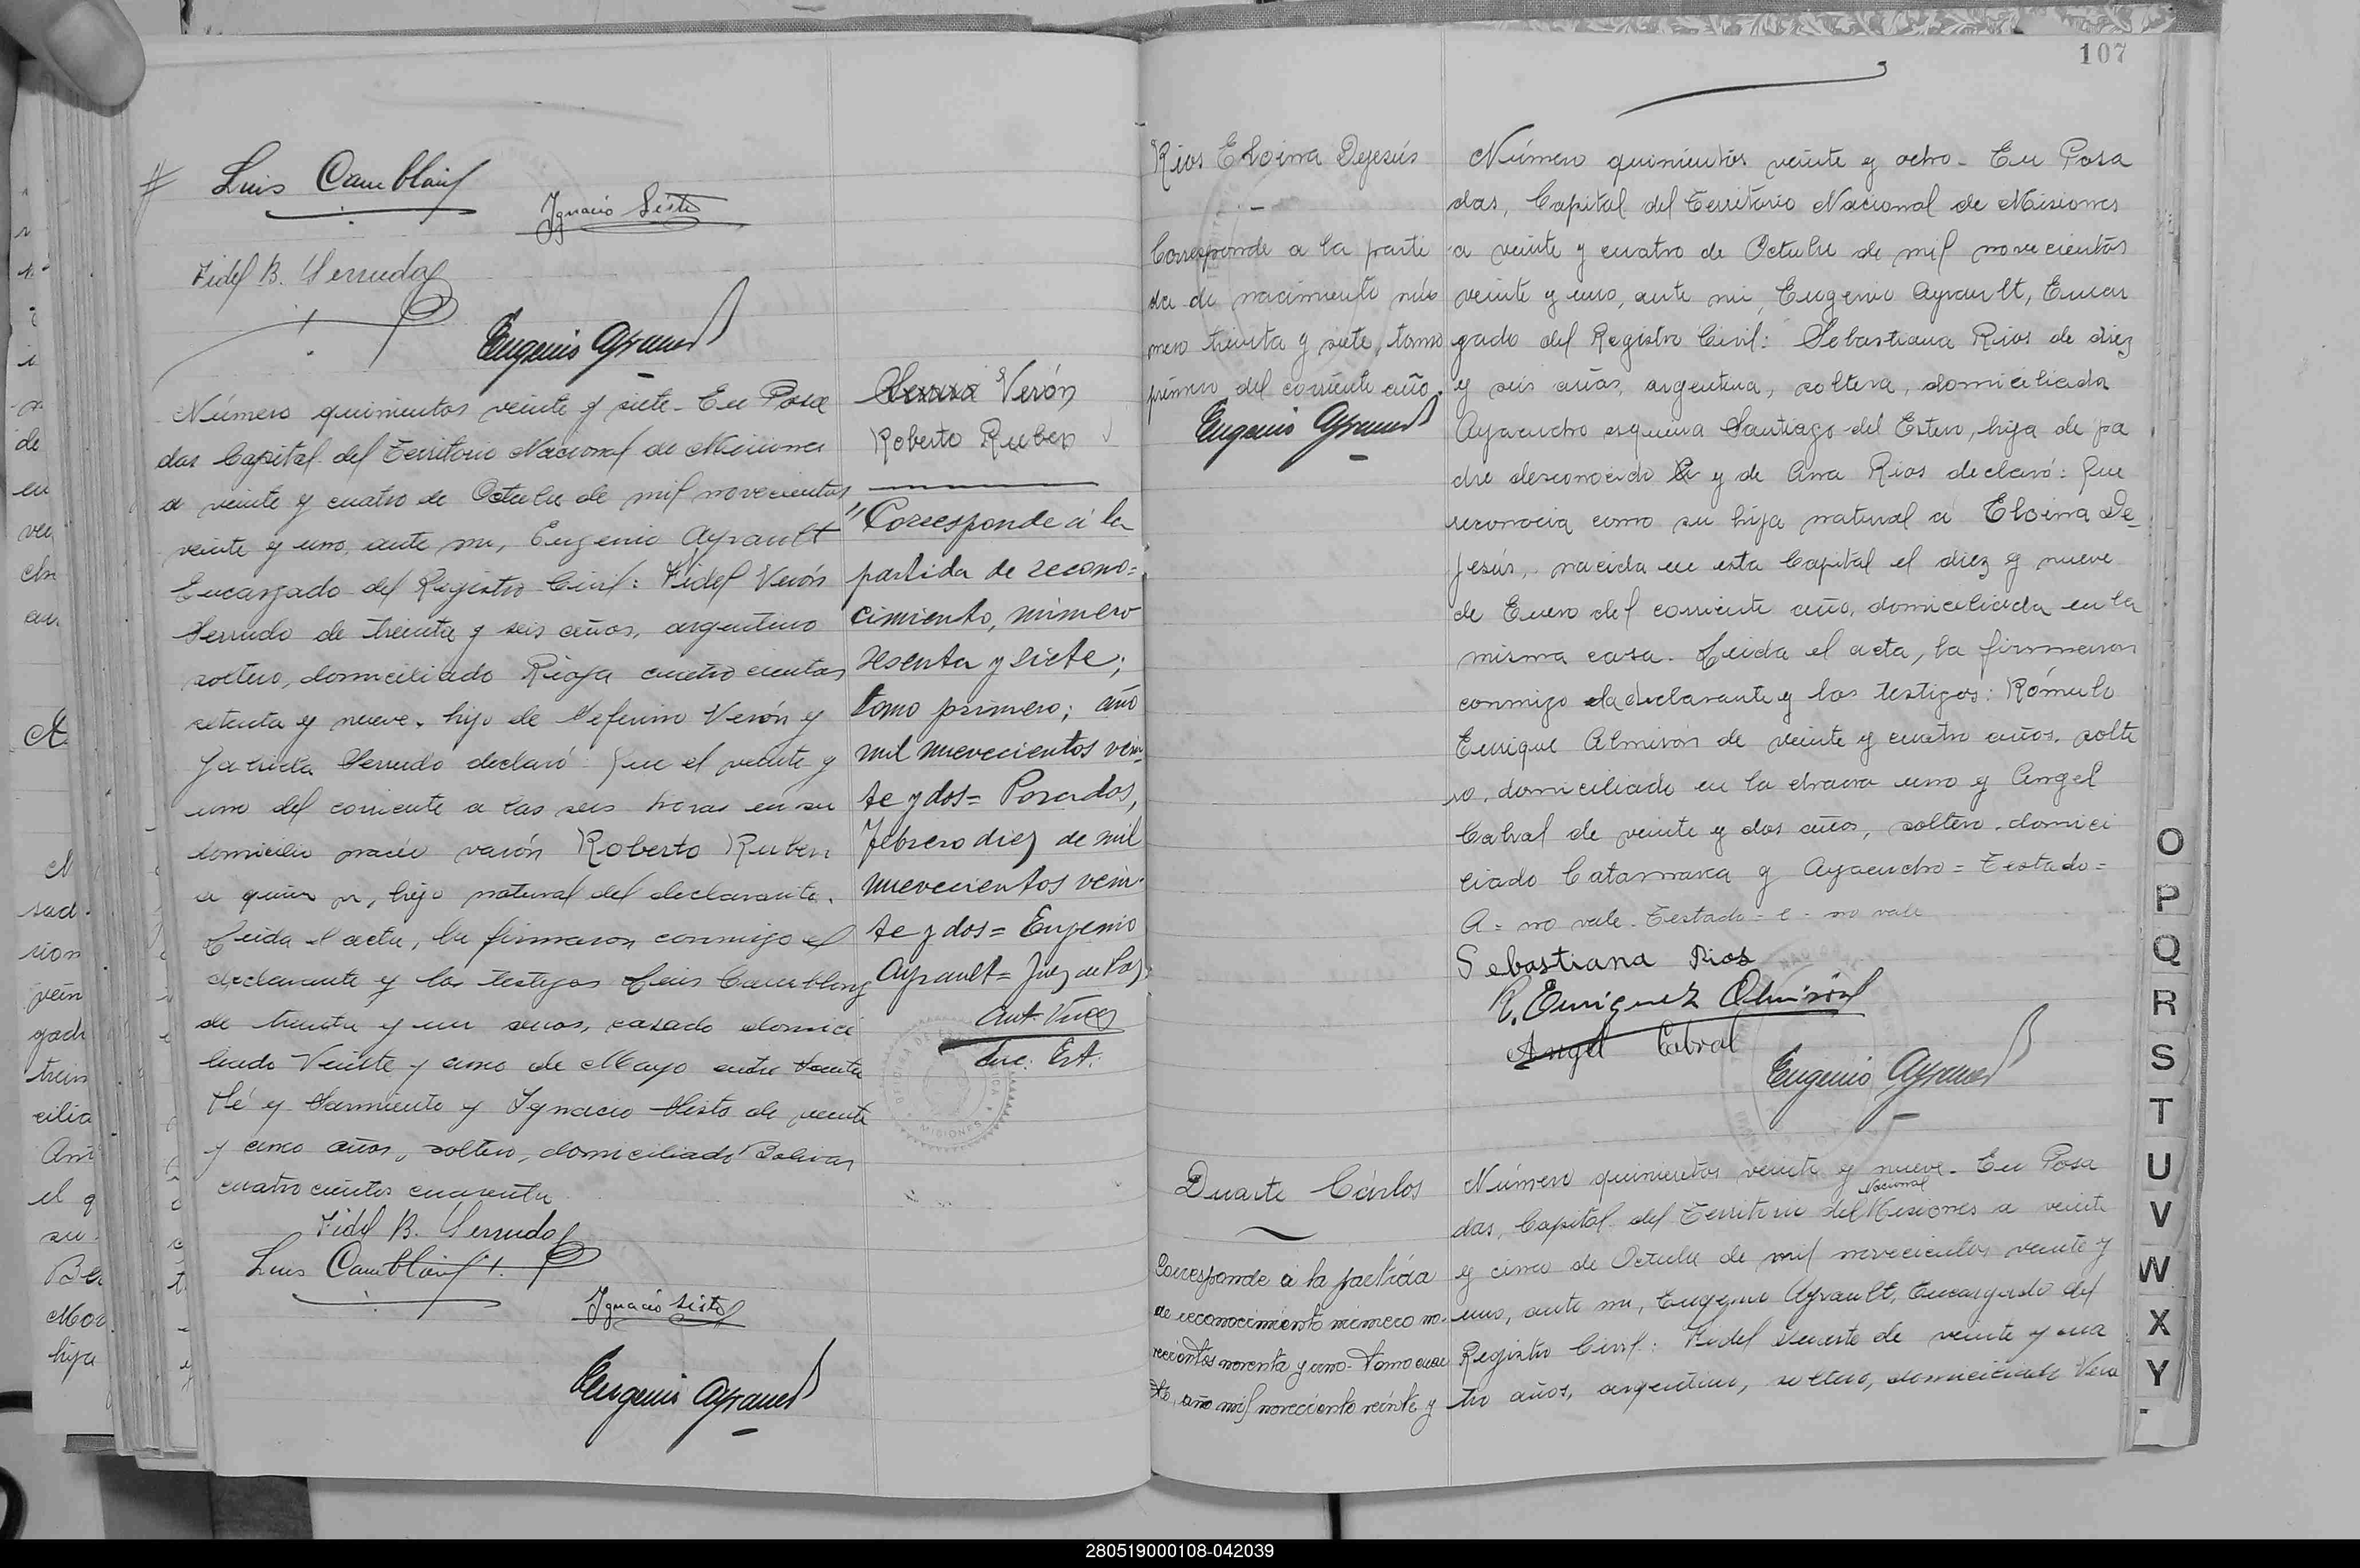 Luis Camblong
Ignacio Sisto
Fidel B. Serrudo
Eugenio Ayrault
Número quinientos veinte y siete - En Posa
das Capital del Territorio Nacional de Misiones
a veinte y cuatro de Octubre de mil novecientos
veinte y uno, ante mi, Eugenio Ayrault
Encargado del Registro Civil: Fidel Verón
Serrudo de treinta y seis años, argentino
soltero, domiciliado Rioja cuatro cientos
setenta y nueve, hijo de Seferino Verón y
Jacinta Serrudo declaró: Que el veinte y
uno del corriente a las seis horas en su
domicilio nació varón Roberto Ruben
a quien vi, hijo natural del declarante.
Leida el acta, la firmaron conmigo el
declarante y los testigos Luis Camblong
de treinta y un años, casado domici
liado Veinte y cinco de Mayo entre Santa
Fé y Sarmiento y Ignacio Sisto de veinte
y cinco años, soltero, domiciliado Bolivar
cuatro cientos cuarenta
Fidel B. Serrudo
Luis Camblong
Ignacio Sisto
Eugenio Ayrault
Verón
Roberto Ruben
"Corresponde á la
partida de recono=
cimiento, número
sesenta y siete;
tomo primero; año
mil nuevecientos vein-
te y dos= Posadas,
Febrero diez de mil
nuevecientos vein-
te y dos= Eugenio
Ayrault= Juez de Paz
Enc. Est.
MISIONES
107
Rios Eloina Dejesús
Corresponde a la parti
da de nacimiento nú
mero treinta y siete, tomo
primero del corriente año.
Eugenio Ayrault
Número quinientos veinte y ocho - En Posa
das, Capital del Territorio Nacional de Misiones
a veinte y cuatro de Octubre de mil novecientos
veinte y uno, ante mi, Eugenio Ayrault, Encar
gado del Registro Civil: Sebastiana Rios de diez
y seis años, argentina, soltera, domiciliada
Ayacucho esquina Santiago del Estero, hija de pa
dre desconocido y de Ana Rios declaró: Que
reconocia como su hija natural a Eloina De-
jesús, nacida en esta Capital el diez y nueve
de Enero del corriente año, domiciliada en la
misma casa. Leida el acta, la firmaron
conmigo la declarante y los testigos: Rómulo
Enrique Almirón de veinte y cuatro años, solte
ro, domiciliado en la chacra uno y Angel
Cabral de veinte y dos años, soltero, domici
liado Catamarca y Ayacucho = Testado =
A = no vale. Testado = e - no vale
Sebastiana Rios
R. Enriquez Almirón
Angel Cabral
Eugenio Ayrault
Duarte Cárlos
Corresponde á la partida
de reconocimiento número no-
vecientos noventa y uno - tomo cuar
to, año mil novecientos veinte y
Número quinientos veinte y nueve - En Posa
das, Capital del Territorio Nacional del Misiones a veinte
y cinco de Octubre de mil novecientos veinte y
uno, ante mi, Eugenio Ayrault, Encargado del
Registro Civil: Fidel Duarte de veinte y cua
tro años, argentino, soltero, domiciliado Vera
O
P
Q
R
S
T
U
V
W
X
Y
280519000108-042039